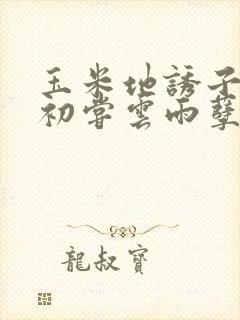 玉米地誘子
初嘗雲雨孽
龍叔寶